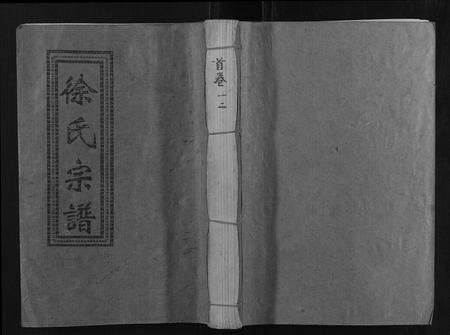 徐氏宗譜
首卷一之二